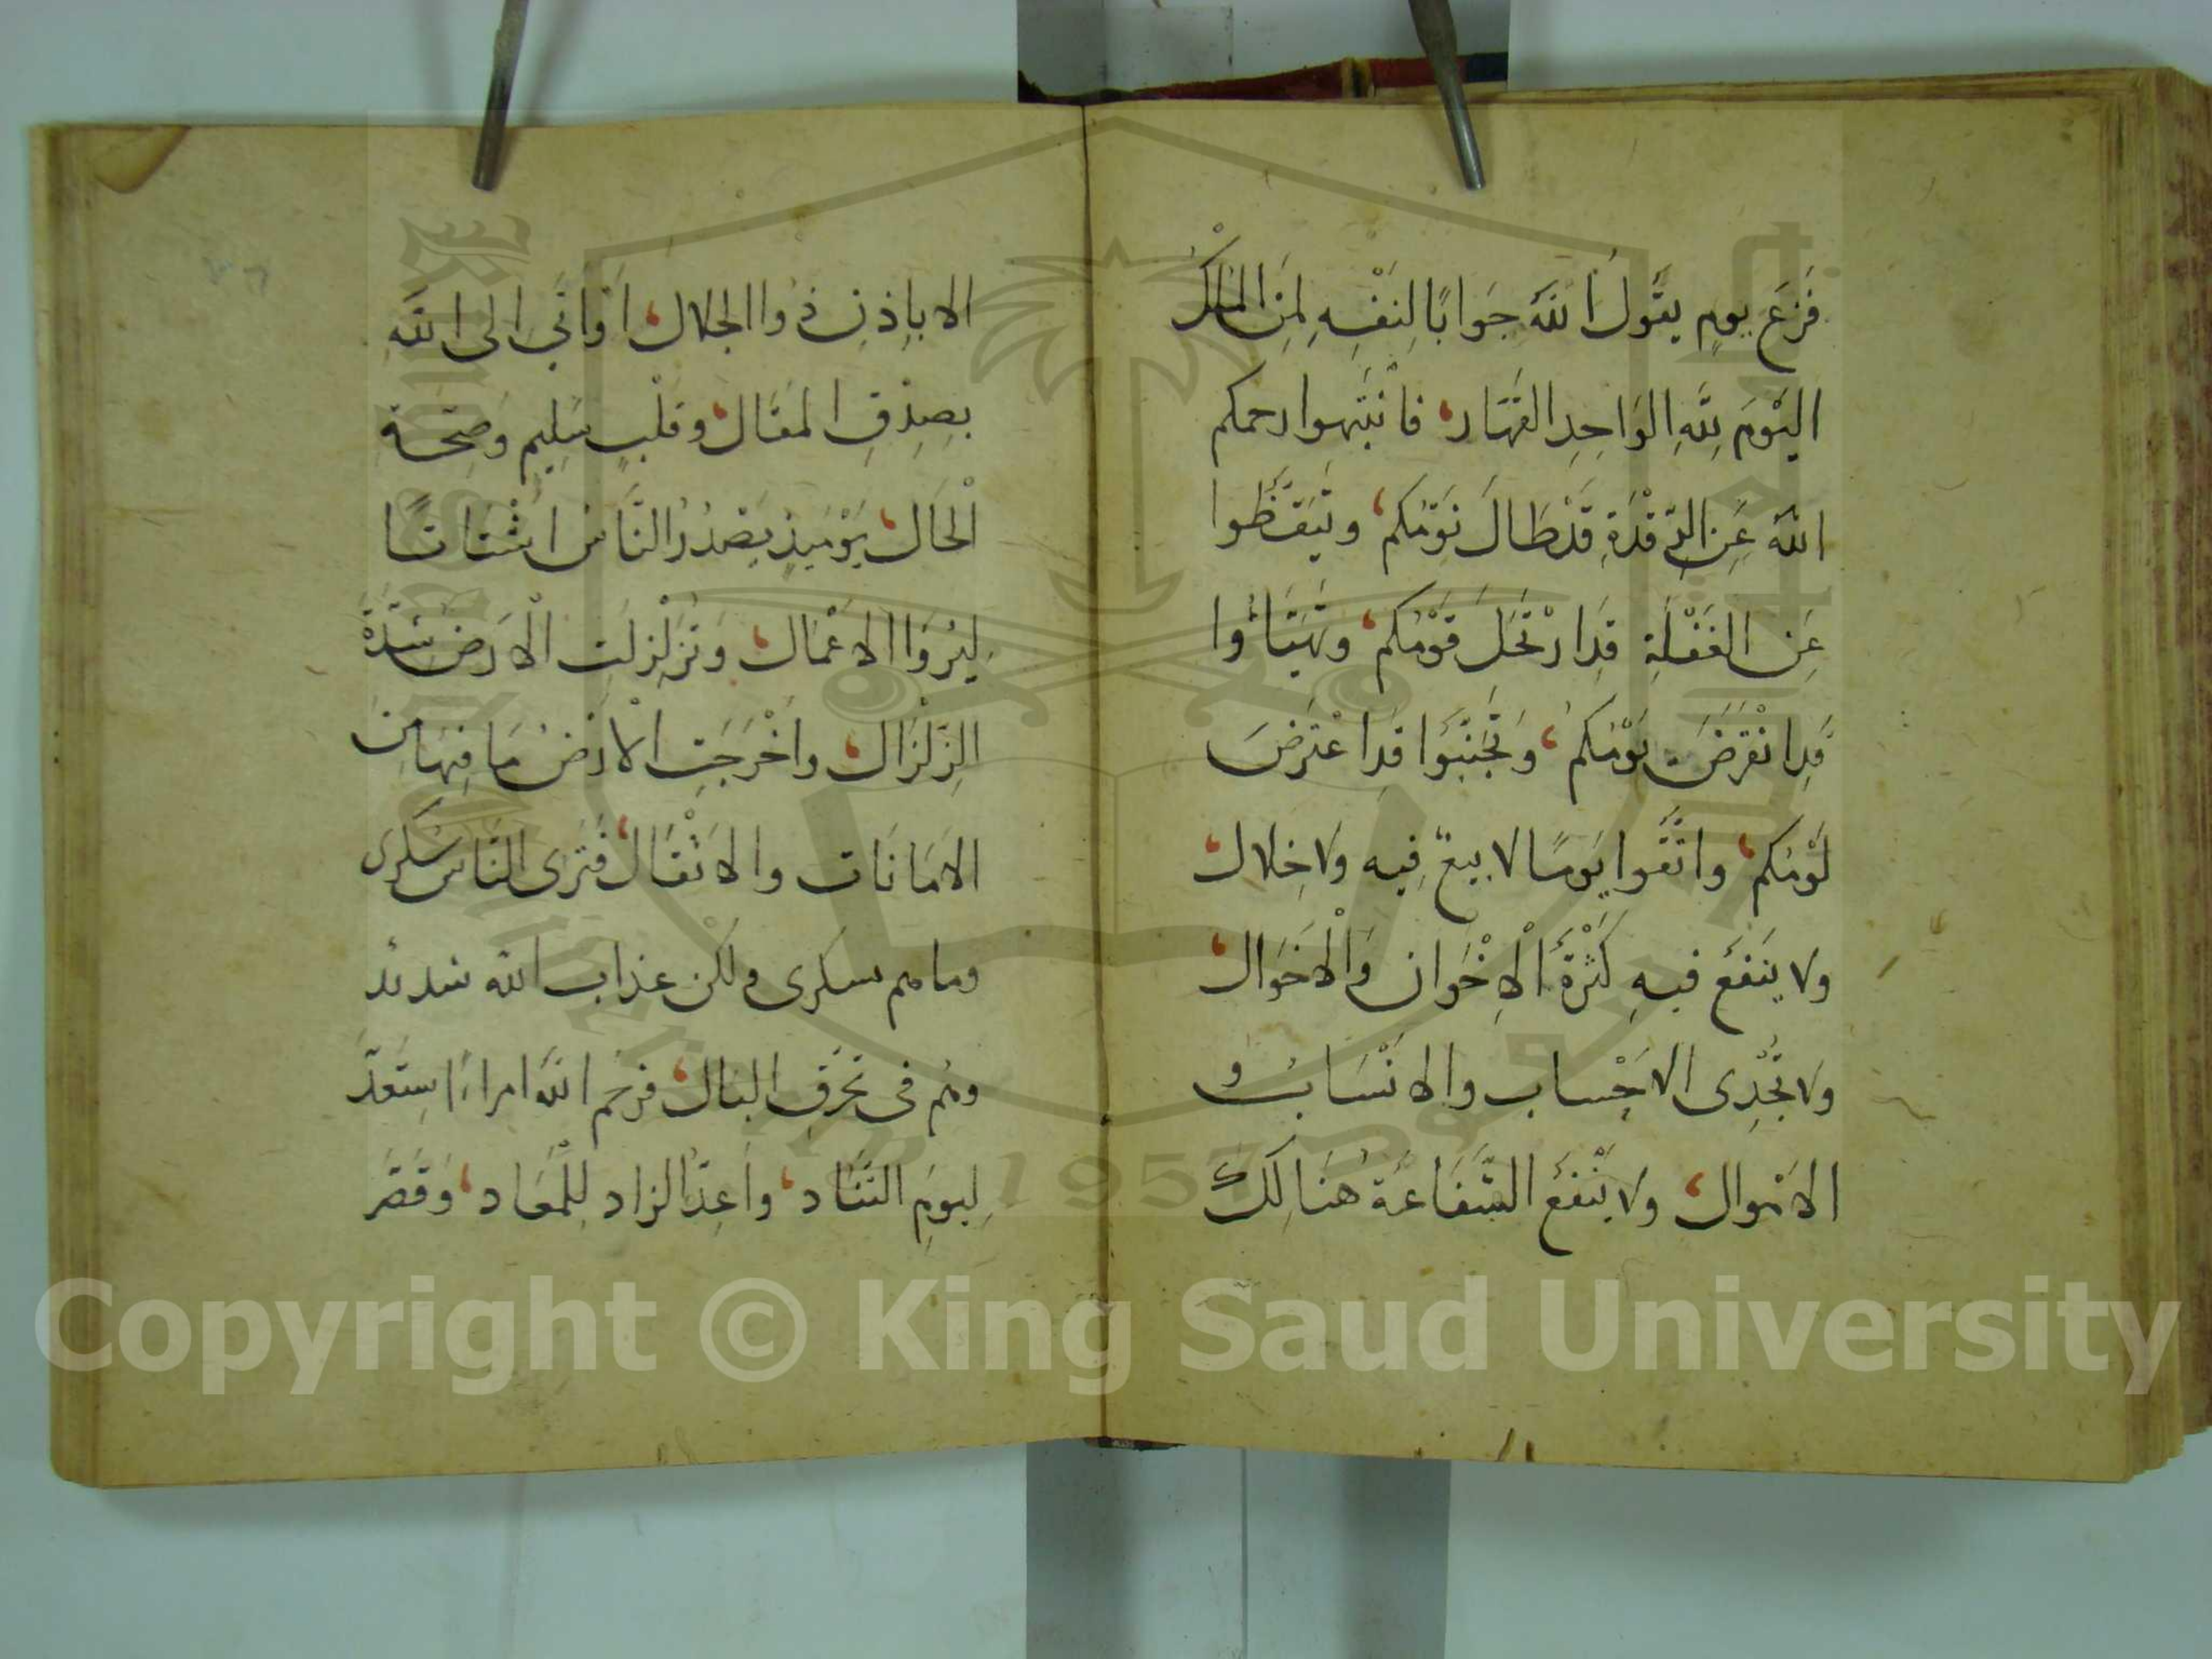 فَزَعِ يومٍ يقولُ اللهُ جَوابًا لِنَفْسِهِ لِمَنِ الْمُلْكُ
اليَوْمَ لِلّٰهِ الوَاحِدِ القَهَّارِ، فانْتَبِهوا رحمكم
اللهُ عَنِ الرَّقْدَةِ قَدْ طَالَ نَوْمُكم، وتَيَقَّظُوا
عَنِ الغَفْلَةِ قَدِ ارْتَحَلَ قَوْمُكم، وتَهَيَّأُوا
قَدِ انْقَرَضَ يَوْمُكم، وَتَجَنَّبُوا قَدِ اعْتَرَضَ
لَوْمُكم، واتَّقُوا يَومًا لا بيعٌ فِيهِ ولا خِلال،
ولا ينَفَعُ فيهِ كَثْرَةُ الْاِخْوَانِ وَالْاَخْوَال،
ولا تُجْدِى الاَحْساب والاَنْسَابُ و
الاَمْوال، ولا يَنْفَعُ الشَّفَاعَةُ هُنَالِكَ
الا بِاِذِنِ ذُوا الجَلال، اَوْ اَتَى الى اللهِ
بِصِدْقِ المقَال، وقَلْبٍ سَلِيمٍ وَصِحَّةِ
الْحَال، يَوْمَئِذٍ يَصْدُرُ النَّاسُ اَشْتَاتًا
لِيُرَوَا الاَعْمَال، وَتَزَلْزَلَتِ الْاَرضُ شِدَّةَ
الزِّلْزَال، واَخْرَجَتِ الْاَرْضُ مَا فِيهَا مِنَ
الاَمَانَات والاَثْقَال، فَتَرَى النَّاسَ سَكْرَى
وما هم سكرى ولٰكن عذاب الله شديد
وهُم فى تَحَرُّقِ البَال، فرَحِمَ اللهُ امراءً اسْتَعَدَّ
لِيومِ التَّنَاد، واَعِدَّ الزاد لِلْمَعَاد، وَقَصَّرَ
Copyright © King Saud University
1957